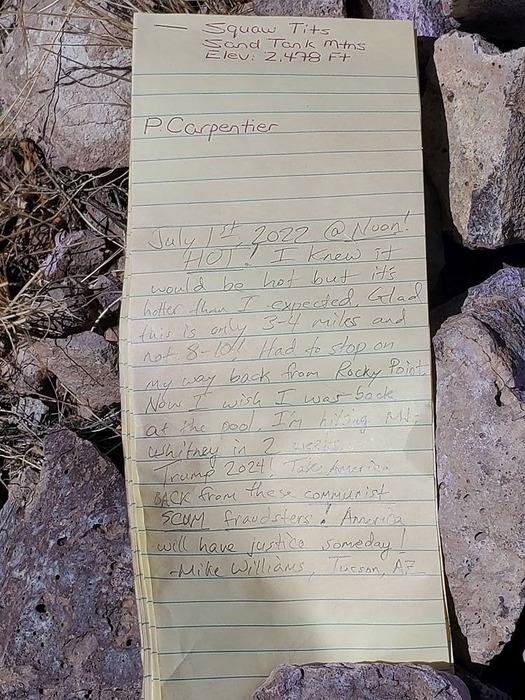 — Squaw Tits
Sand Tank Mtns
Elev: 2,478 Ft
P Carpentier
July 1st, 2022 @ Noon!
HOT! I knew it
would be hot but it's
hotter than I expected. Glad
this is only 3-4 miles and
not 8-10!! Had to stop on
my way back from Rocky Point.
Now I wish I was back
at the pool. I'm hiking Mt.
Whitney in 2 weeks.
Trump 2024! Take America
BACK from these communist
SCUM fraudsters! America
will have justice someday!
-Mike Williams, Tucson, AZ